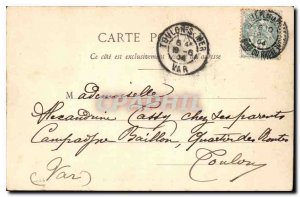 CARTE
Ce côté est exclusivement
adresse
TOULON-S-MER
VAR
Mademoiselle
Alexandrine Cassy chez ses parents
Campagne Baillon, Quartier des Routes
Toulon
(Var)